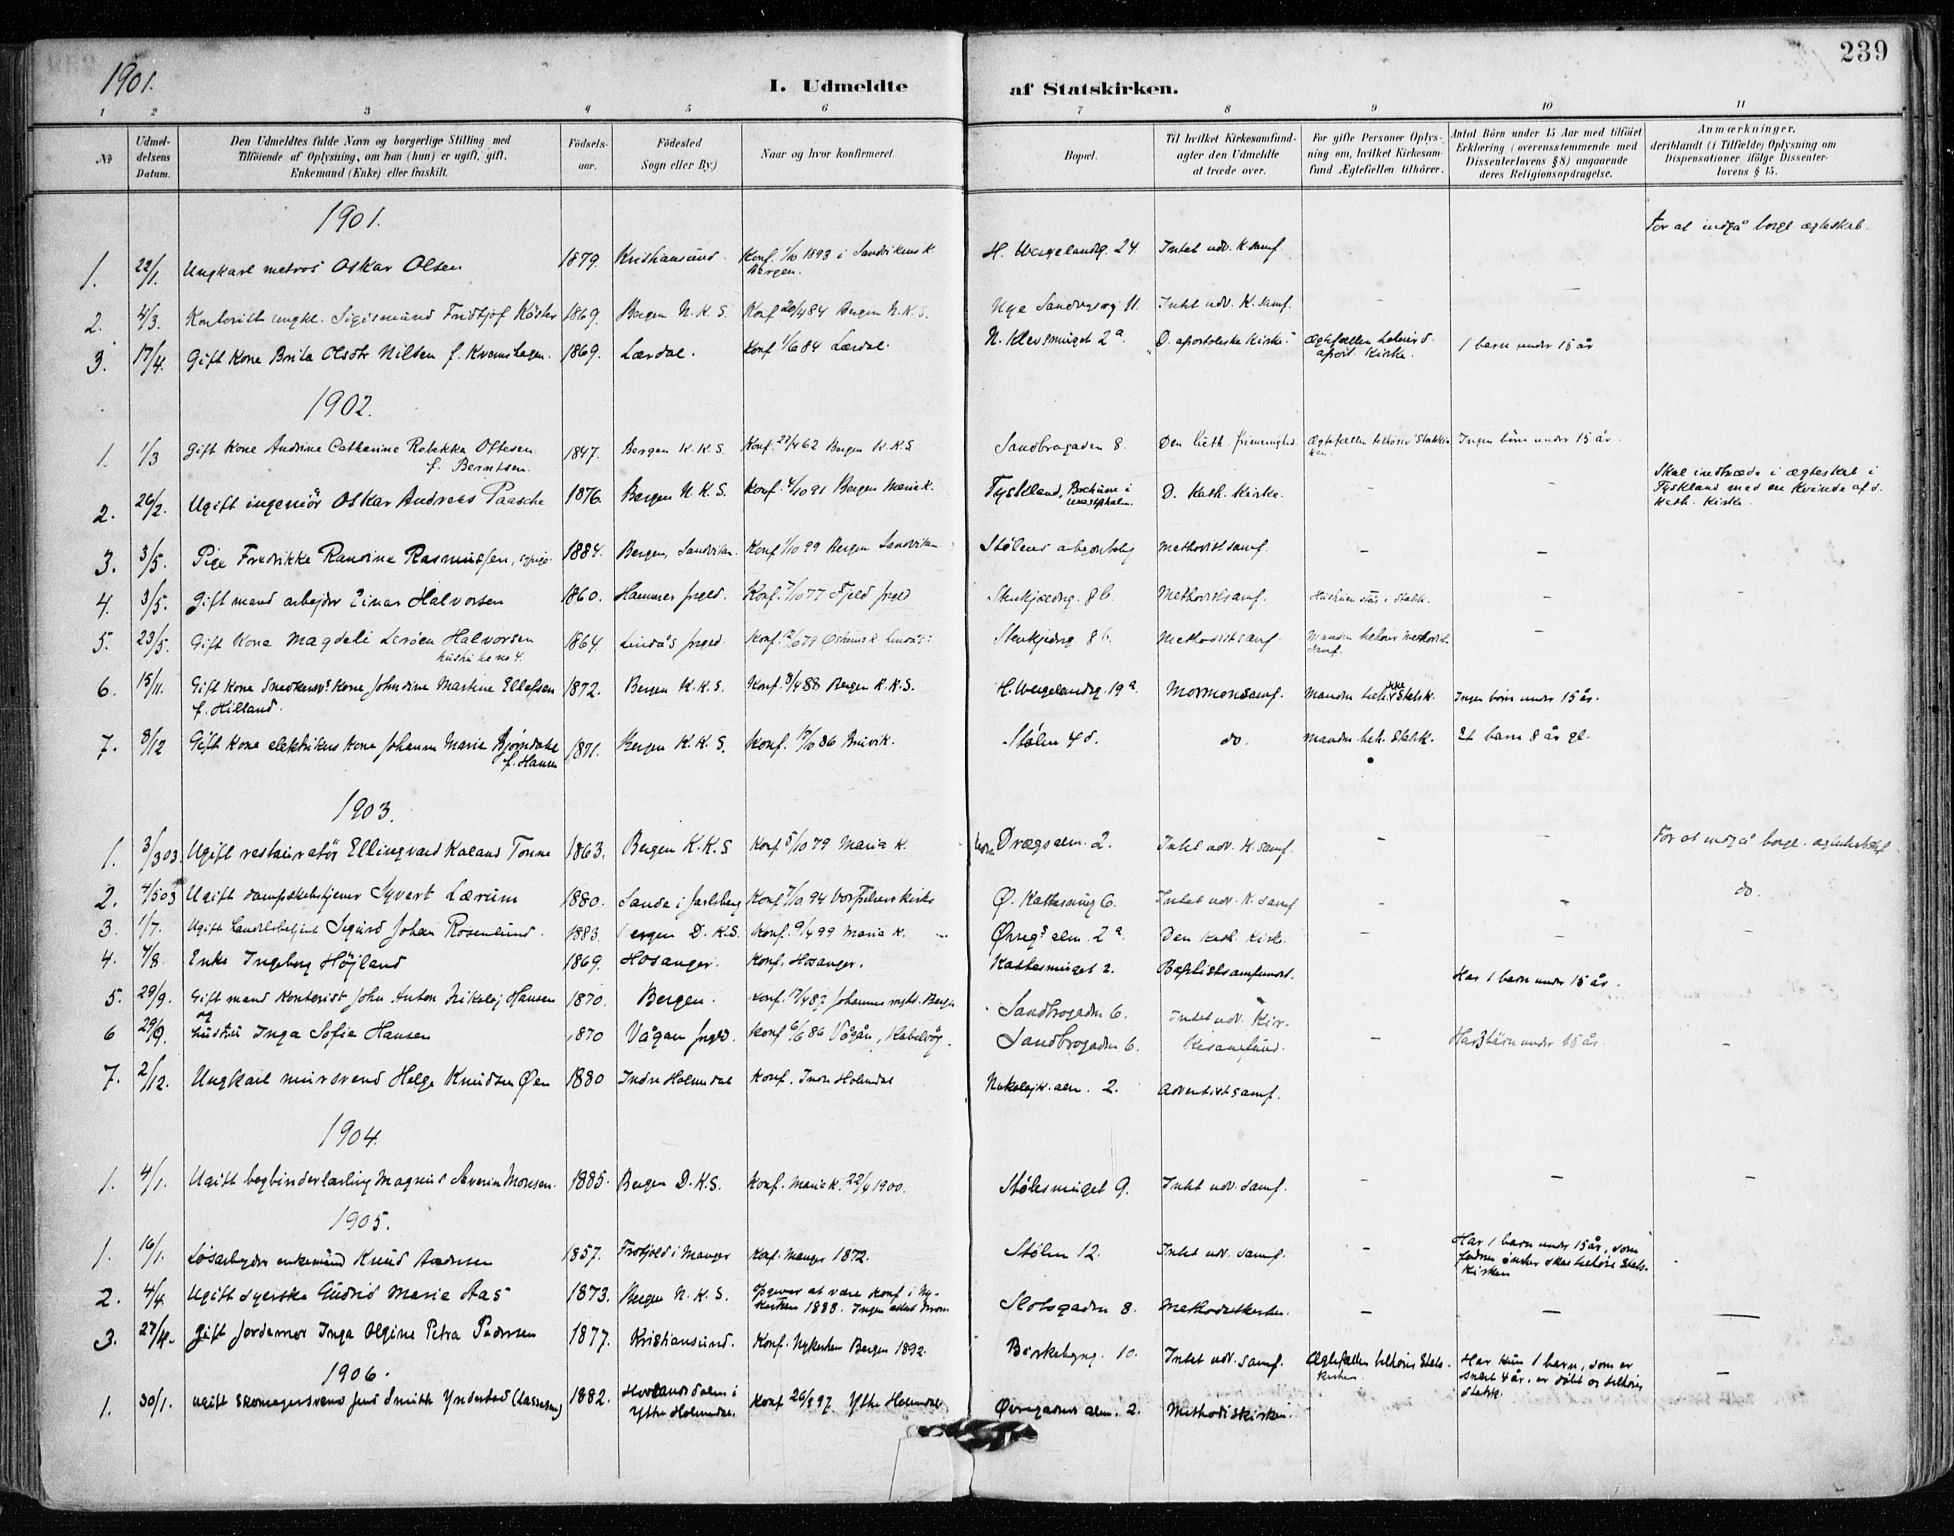 239
1901.
I. Udmeldte af Statskirken.
1 2 3 4 5 6 7 8 9 10 11
No
Udmel-
delsens
Datum.
Den Udmeldtes fulde Navn og borgerlige Stilling med
Tilföiende af Oplysning, om han (hun) er ugift, gift,
Enkemand (Enke) eller fraskilt.
Födsels-
aar.
Födested
Sogn eller By.)
Naar og hvor konfirmeret.
Bopæl.
Til hvilket Kirkesamfund-
agter den Udmeldte
at træde over.
For gifte Personer Oplys-
ning om, hvilket Kirkesam-
fund Ægtefællen tilhörer.
Antal Börn under 15 Aar med tilföiet
Erklæring (overensstemmende med
Dissenterlovens § 8) angaaende
deres Religionsopdragelse.
Anmærkninger,
deriblandt (i Tilfælde) Oplysning om
Dispensationer ifölge Dissenter-
lovens § 15.
1901.
For at indgå borgl ægteskab.
1. 22/1. Ungkarl matros Oskar Olsen 1879. Kristiansund. Konf. 1/10 1893 i Sandvikens k. Bergen. H. Wergelandsg. 24 Intet udv. K. samf.
2. 4/3. Kontorist ungkl. Sigismund Fridtjof Köster 1869. Bergen N.K.S. Konf 20/4 84 Bergen N.K.S. Nye Sandvigsvej 11. Intet udv. K. samf. – –
3. 17/4. Gift Kone Brita Olsdtr Nilsen f. Kvamshagen. 1869. Lærdal. Konf 1/6 84 Lærdal. N. Klevsmuget 2a "D. apostoliske Kirke" Ægtefællen tilhører d. apost. Kirke. 1 barn under 15 år
1902.
1. 1/3 Gift Kone Andrine Catharine Rebekka Ottesen f. Berntsen. 1847. Bergen K.K.S. Konf. 27/4 62 Bergen K.K.S Sandbrogaden 8. Den luth. frimenighed. Ægtefællen tilhører Statskirken. Ingen børn under 15 år.
2. 26/2. Ugift ingeniör Oskar Andreas Paasche 1876. Bergen N.K.S. Konf. 4/10 91 Bergen Mariak. Tyskland, Bochum i Westphalen. D. Kath. Kirke. – – Skal indtræde i ægteskab i Tyskland med en kvinde af d. kath. Kirke.
3. 3/5. Pige Fredrikke Randine Rasmussen, sypige. 1884. Bergen, Sandviken. Konf 1/10 99 Bergen Sandviken Stølens arbejderbolig Methodistsamf. – –
4. 3/5. Gift mand arbejder Einar Halvorsen 1860. Hammer prgld. Konf. 7/10 77 Fjeld prgld Stenkjeldrg. 8 b. Methodistsamf. Hustruen står i Statsk. – –
5. 23/5. Gift Kone Magdeli Lerøen Halvorsen hustru til no 4. 1864. Lindås prgld. Konf. 12/10 79 Lindås Stenkjeldrg 8 b. Methodistsamf Manden tilhører Methodistsamf. –
6. 15/11. Gift Kone Snedkersv's Kone Johndine Martine Ellefsen f. Hilland. 1872. Bergen K.K.S. Konf. 8/4 88 Bergen K.K.S. H. Wergelandsg. 19a. Mormonsamf. Manden tilh. ikke Statsk. Ingen børn under 15 år.
7. 8/12 Gift Kone elektrikers Kone Johanne Marie Bjørndahl f. Hansen 1871. Bergen K.K.S. Konf. 17/10 86 Bruvik. Stølen 4 d. do. Manden tilh. Statsk. Et barn 8 år gl.
1903.
1. 3/3 03. Ugift restauratör Ellingvard Kaland Tonne 1863. Bergen K.K.S Konf 5/10 79 Maria k. Dregsalm. 2. Intet udv. K samf. – – For at indgå borgl. ægteskab
2. 4/5 03 Ugift dampskibstjener Syvert Lærum 1880. Sande i Jarlsberg Konf 7/10 94 Vor Frelsers kirke Ø. Kattesmug 6. Intet udv. K. samf – – do.
3. 1/7. Ugift Handelsbetjent Sigurd Johan Rosenlund. 1883. Bergen D.K.S. Konf. 9/4 99 Maria k. Øvregs alm. 2a. Den kath. kirke. – – –
4. 7/8. Enke Ingeborg Høyland 1869. Hosanger. Konf. Hosanger. Kattesmuget 2. Baptistsamfundet. Har 1 barn under 15 år.
5. 29/9. Gift mand kontorist John Anton Nikolaj Hansen og 1870. Bergen. Konf. 17/4 87 Johannes mght. Bergen Sandbrogaden 6. Intet udv. Kir-
6 29/9. hustru Inga Sofia Hansen 1870 Vågan prgld. Konf 6/6 86 Vågan, Kabelvåg. Sandbrogaden 6. kesamfund. – Har 3 børn under 15 år. –
7. 2/12. Ungkarl mursvend Helge Knudsen Øen 1880 Indre Holmedal Konf. Indre Holmedal Nykelejk. alm. 2. Adventistsamf.
1904.
1. 4/1. Ugift bogbinderlærling Magnus Severin Monsen. 1885. Bergen D.K.S. Konf. Maria k. 22/4 1900. Stølesmuget 9. Intet udv. samf. – – –
1905.
1. 16/1. Løsarbejder enkemand Knud Andersen 1857. Frofjeld i Manger Konf. Manger 1872. Stølen 12. Intet udv. samf. – Har 1 barn under 15 år, som faderen ønsker skal tilhøre Statskirken
2. 4/4. Ugift syerske Gudrid Maria Aas 1873. Bergen N.K.S. Opgiver at være konf i Nykirken 1888. Ingen attest Slotsgaden 8. Methodistkirken. – – –
3. 27/4. Gift Jordemor Inga Olgine Petra Pedersen 1877. Kristiansund. Konf. Nykirken Bergen 1892. Birkebgng. 10. Intet udv. samf. Ægtefællen tilhører Statskirken Har kun 1 barn, som er snart 4 år, er døbt og tilhører statsk. –
1906.
1. 30/1. Ugift Skomagersvend Jens Smith Ynderstad (Lassesen) 1882. Hovlandsdalen i Ytre Holmedal. Konf 26/9 97. Ytre Holmedal Øvregadens alm. 2. Methodistkirken.